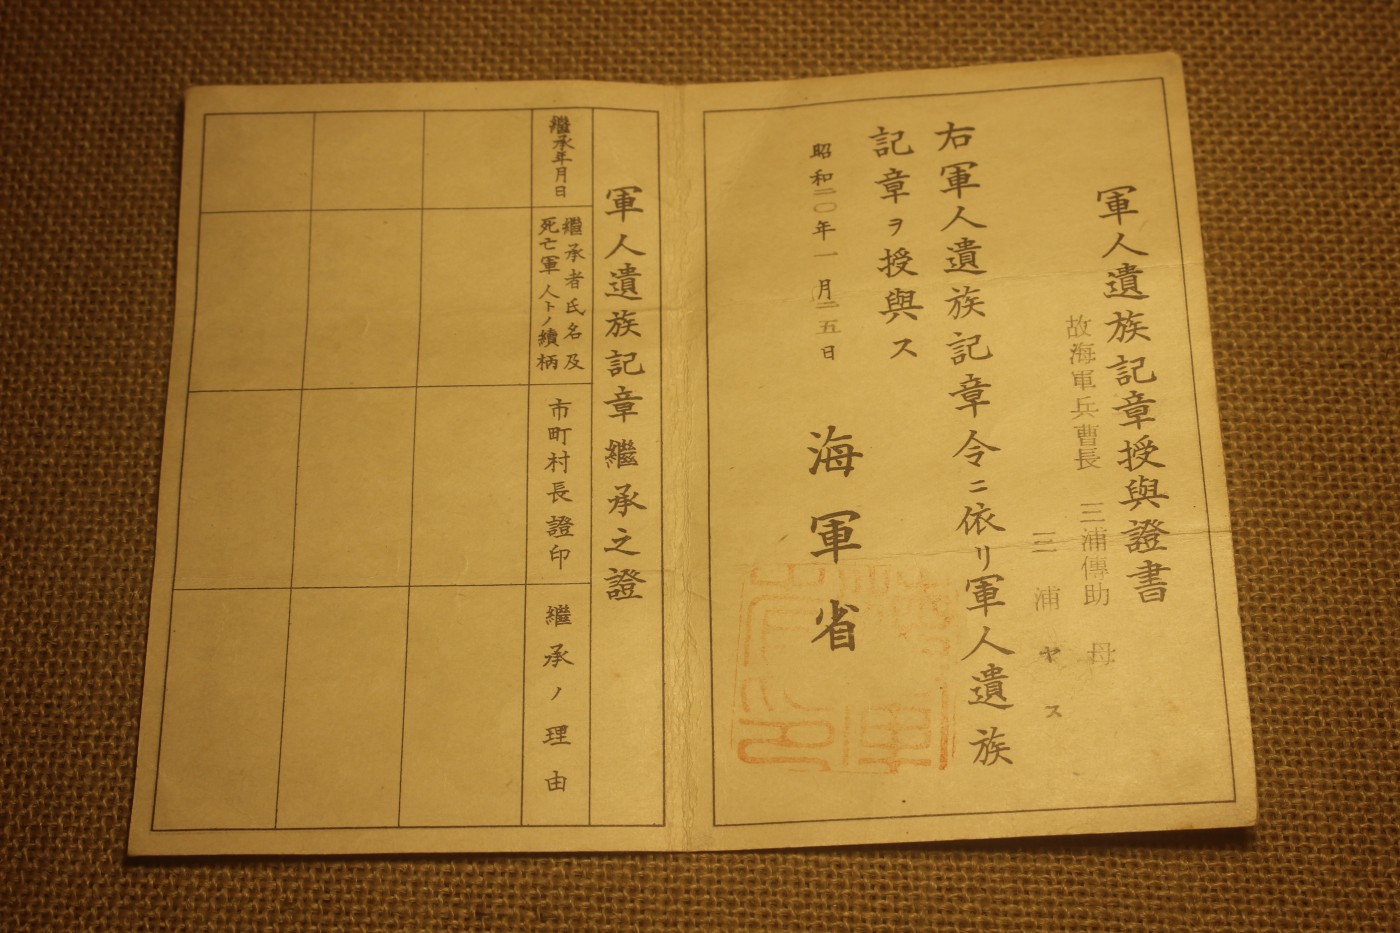 軍人遺族記章授與證書
故海軍兵曹長 三浦傳助 母
三浦ヤス
右軍人遺族記章令ニ依リ軍人遺族
記章ヲ授與ス
昭和二〇年一月二五日
海軍省
軍人遺族記章繼承之證
繼承年月日
繼承者氏名及
死亡軍人トノ續柄
市町村長證印
繼承ノ理由